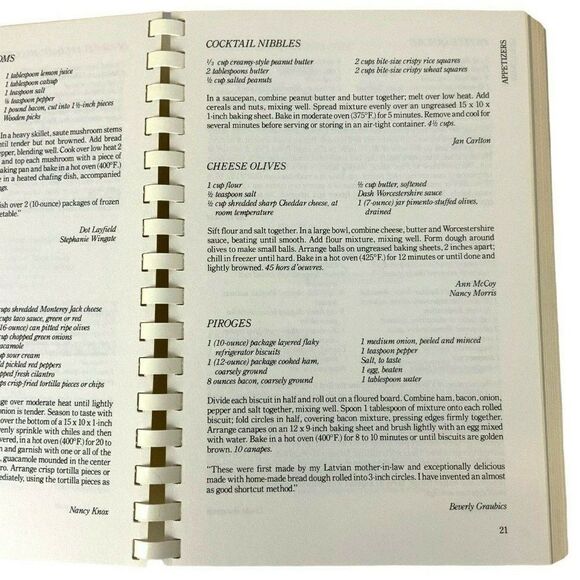 OMS
1 tablespoon lemon juice
1 tablespoon catsup
1 teaspoon salt
⅛ teaspoon pepper
1 pound bacon, cut into 1½-inch pieces
Wooden picks
In a heavy skillet, saute mushroom stems
until tender but not browned. Add bread
pepper, blending well. Cook over low heat 2
and top each mushroom with a piece of
baking pan and bake in a hot oven (400°F.)
in a heated chafing dish, accompanied
ngs.
ish over 2 (10-ounce) packages of frozen
etable."
Dot Layfield
Stephanie Wingate
cups shredded Monterey Jack cheese
cups taco sauce, green or red
(16-ounce) can pitted ripe olives
cup chopped green onions
uacamole
cup sour cream
ild pickled red peppers
opped fresh cilantro
ps crisp-fried tortilla pieces or chips
ge over moderate heat until lightly
onion is tender. Season to taste with
over the bottom of a 15 x 10 x 1-inch
venly sprinkle with chiles and then
vered, in a hot oven (400°F.) for 20 to
n and garnish with one or all of the
, guacamole mounded in the center
ro. Arrange crisp tortilla pieces or
ediately, using the tortilla pieces as
Nancy Knox
APPETIZERS
COCKTAIL NIBBLES
⅓ cup creamy-style peanut butter
2 tablespoons butter
½ cup salted peanuts
2 cups bite-size crispy rice squares
2 cups bite-size crispy wheat squares
In a saucepan, combine peanut butter and butter together; melt over low heat. Add
cereals and nuts, mixing well. Spread mixture evenly over an ungreased 15 x 10 x
1-inch baking sheet. Bake in moderate oven (375°F.) for 5 minutes. Remove and cool for
several minutes before serving or storing in an air-tight container. 4½ cups.
Jan Carlton
CHEESE OLIVES
1 cup flour
½ teaspoon salt
½ cup shredded sharp Cheddar cheese, at
room temperature
½ cup butter, softened
Dash Worcestershire sauce
1 (7-ounce) jar pimento-stuffed olives,
drained
Sift flour and salt together. In a large bowl, combine cheese, butter and Worcestershire
sauce, beating until smooth. Add flour mixture, mixing well. Form dough around
olives to make small balls. Arrange balls on ungreased baking sheets, 2 inches apart;
chill in freezer until hard. Bake in a hot oven (425°F.) for 12 minutes or until done and
lightly browned. 45 hors d'oeuvres.
Ann McCoy
Nancy Morris
PIROGES
1 (10-ounce) package layered flaky
refrigerator biscuits
1 (12-ounce) package cooked ham,
coarsely ground
8 ounces bacon, coarsely ground
1 medium onion, peeled and minced
1 teaspoon pepper
Salt, to taste
1 egg, beaten
1 tablespoon water
Divide each biscuit in half and roll out on a floured board. Combine ham, bacon, onion,
pepper and salt together, mixing well. Spoon 1 tablespoon of mixture onto each rolled
biscuit; fold circles in half, covering bacon mixture, pressing edges firmly together.
Arrange canapes on an 12 x 9-inch baking sheet and brush lightly with an egg mixed
with water. Bake in a hot oven (400°F.) for 8 to 10 minutes or until biscuits are golden
brown. 10 canapes.
"These were first made by my Latvian mother-in-law and exceptionally delicious
made with home-made bread dough rolled into 3-inch circles. I have invented an almost
as good shortcut method."
Beverly Graubics
21